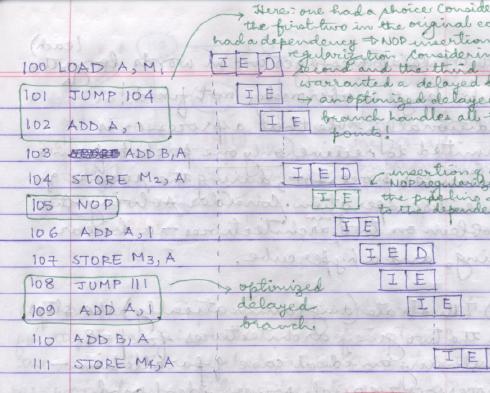 Here: one had a choice: Consider
the first two in the original co
had a dependency → NOP insertion
regularization. Considerin
second and the third
warranted a delayed b
→ an optimized delayed
branch handles all
points!
100 LOAD A, M1 I E D
101 JUMP 104 I E
102 ADD A, 1 I E
103 ADD B, A
104 STORE M2, A I E D
105 NOP I E
insertion of
NOP regulariz
the pipeline
to the depende
106 ADD A, 1 I E
107 STORE M3, A I E D
108 JUMP 111 I E
109 ADD A, 1 I E
optimized
delayed
branch.
110 ADD B, A
111 STORE M4, A I E